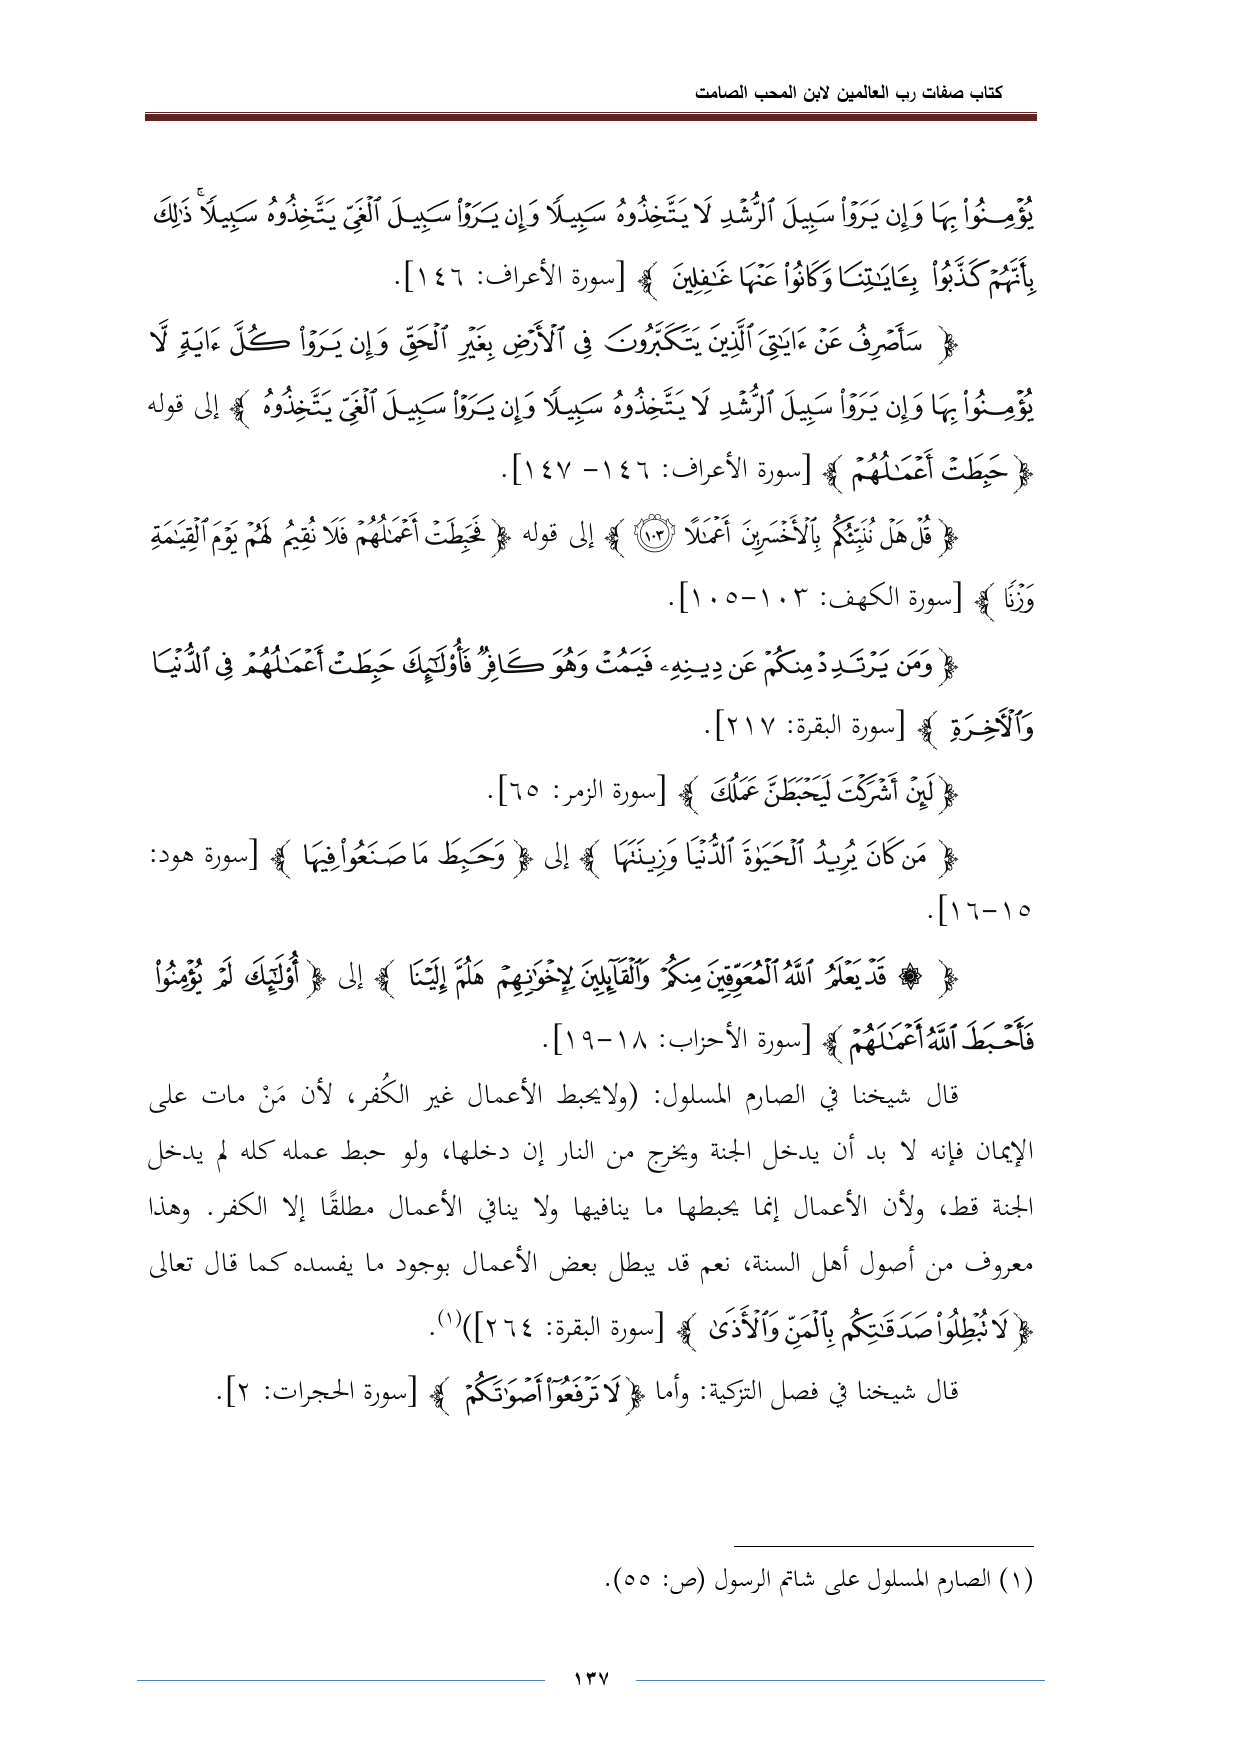 كتاب صفات رب العالمين لابن المحب الصامت
يُؤْمِنُوا۟ بِهَا وَإِن يَرَوْا۟ سَبِيلَ ٱلرُّشْدِ لَا يَتَّخِذُوهُ سَبِيلًا وَإِن يَرَوْا۟ سَبِيلَ ٱلْغَىِّ يَتَّخِذُوهُ سَبِيلًا ۚ ذَٰلِكَ
بِأَنَّهُمْ كَذَّبُوا۟ بِـَٔايَـٰتِنَا وَكَانُوا۟ عَنْهَا غَـٰفِلِينَ ﴾ [سورة الأعراف: ١٤٦].
﴿ سَأَصْرِفُ عَنْ ءَايَـٰتِىَ ٱلَّذِينَ يَتَكَبَّرُونَ فِى ٱلْأَرْضِ بِغَيْرِ ٱلْحَقِّ وَإِن يَرَوْا۟ كُلَّ ءَايَةٍ لَّا
يُؤْمِنُوا۟ بِهَا وَإِن يَرَوْا۟ سَبِيلَ ٱلرُّشْدِ لَا يَتَّخِذُوهُ سَبِيلًا وَإِن يَرَوْا۟ سَبِيلَ ٱلْغَىِّ يَتَّخِذُوهُ ﴾ إلى قوله
﴿ حَبِطَتْ أَعْمَـٰلُهُمْ ﴾ [سورة الأعراف: ١٤٦- ١٤٧].
﴿ قُلْ هَلْ نُنَبِّئُكُم بِٱلْأَخْسَرِينَ أَعْمَـٰلًا ١٠٣ ﴾ إلى قوله ﴿ فَحَبِطَتْ أَعْمَـٰلُهُمْ فَلَا نُقِيمُ لَهُمْ يَوْمَ ٱلْقِيَـٰمَةِ
وَزْنًا ﴾ [سورة الكهف: ١٠٣-١٠٥].
﴿ وَمَن يَرْتَدِدْ مِنكُمْ عَن دِينِهِۦ فَيَمُتْ وَهُوَ كَافِرٌ فَأُو۟لَـٰٓئِكَ حَبِطَتْ أَعْمَـٰلُهُمْ فِى ٱلدُّنْيَا
وَٱلْـَٔاخِرَةِ ﴾ [سورة البقرة: ٢١٧].
﴿ لَئِنْ أَشْرَكْتَ لَيَحْبَطَنَّ عَمَلُكَ ﴾ [سورة الزمر: ٦٥].
﴿ مَن كَانَ يُرِيدُ ٱلْحَيَوٰةَ ٱلدُّنْيَا وَزِينَتَهَا ﴾ إلى ﴿ وَحَبِطَ مَا صَنَعُوا۟ فِيهَا ﴾ [سورة هود:
١٥-١٦].
﴿ ۞ قَدْ يَعْلَمُ ٱللَّهُ ٱلْمُعَوِّقِينَ مِنكُمْ وَٱلْقَآئِلِينَ لِإِخْوَٰنِهِمْ هَلُمَّ إِلَيْنَا ﴾ إلى ﴿ أُو۟لَـٰٓئِكَ لَمْ يُؤْمِنُوا۟
فَأَحْبَطَ ٱللَّهُ أَعْمَـٰلَهُمْ ﴾ [سورة الأحزاب: ١٨-١٩].
قال شيخنا في الصارم المسلول: (ولايحبط الأعمال غير الكُفر، لأن مَنْ مات على
الإيمان فإنه لا بد أن يدخل الجنة ويخرج من النار إن دخلها، ولو حبط عمله كله لم يدخل
الجنة قط، ولأن الأعمال إنما يحبطها ما ينافيها ولا ينافي الأعمال مطلقًا إلا الكفر. وهذا
معروف من أصول أهل السنة، نعم قد يبطل بعض الأعمال بوجود ما يفسده كما قال تعالى
﴿ لَا تُبْطِلُوا۟ صَدَقَـٰتِكُم بِٱلْمَنِّ وَٱلْأَذَىٰ ﴾ [سورة البقرة: ٢٦٤])(١).
قال شيخنا في فصل التزكية: وأما ﴿ لَا تَرْفَعُوٓا۟ أَصْوَٰتَكُمْ ﴾ [سورة الحجرات: ٢].
(١) الصارم المسلول على شاتم الرسول (ص: ٥٥).
١٣٧